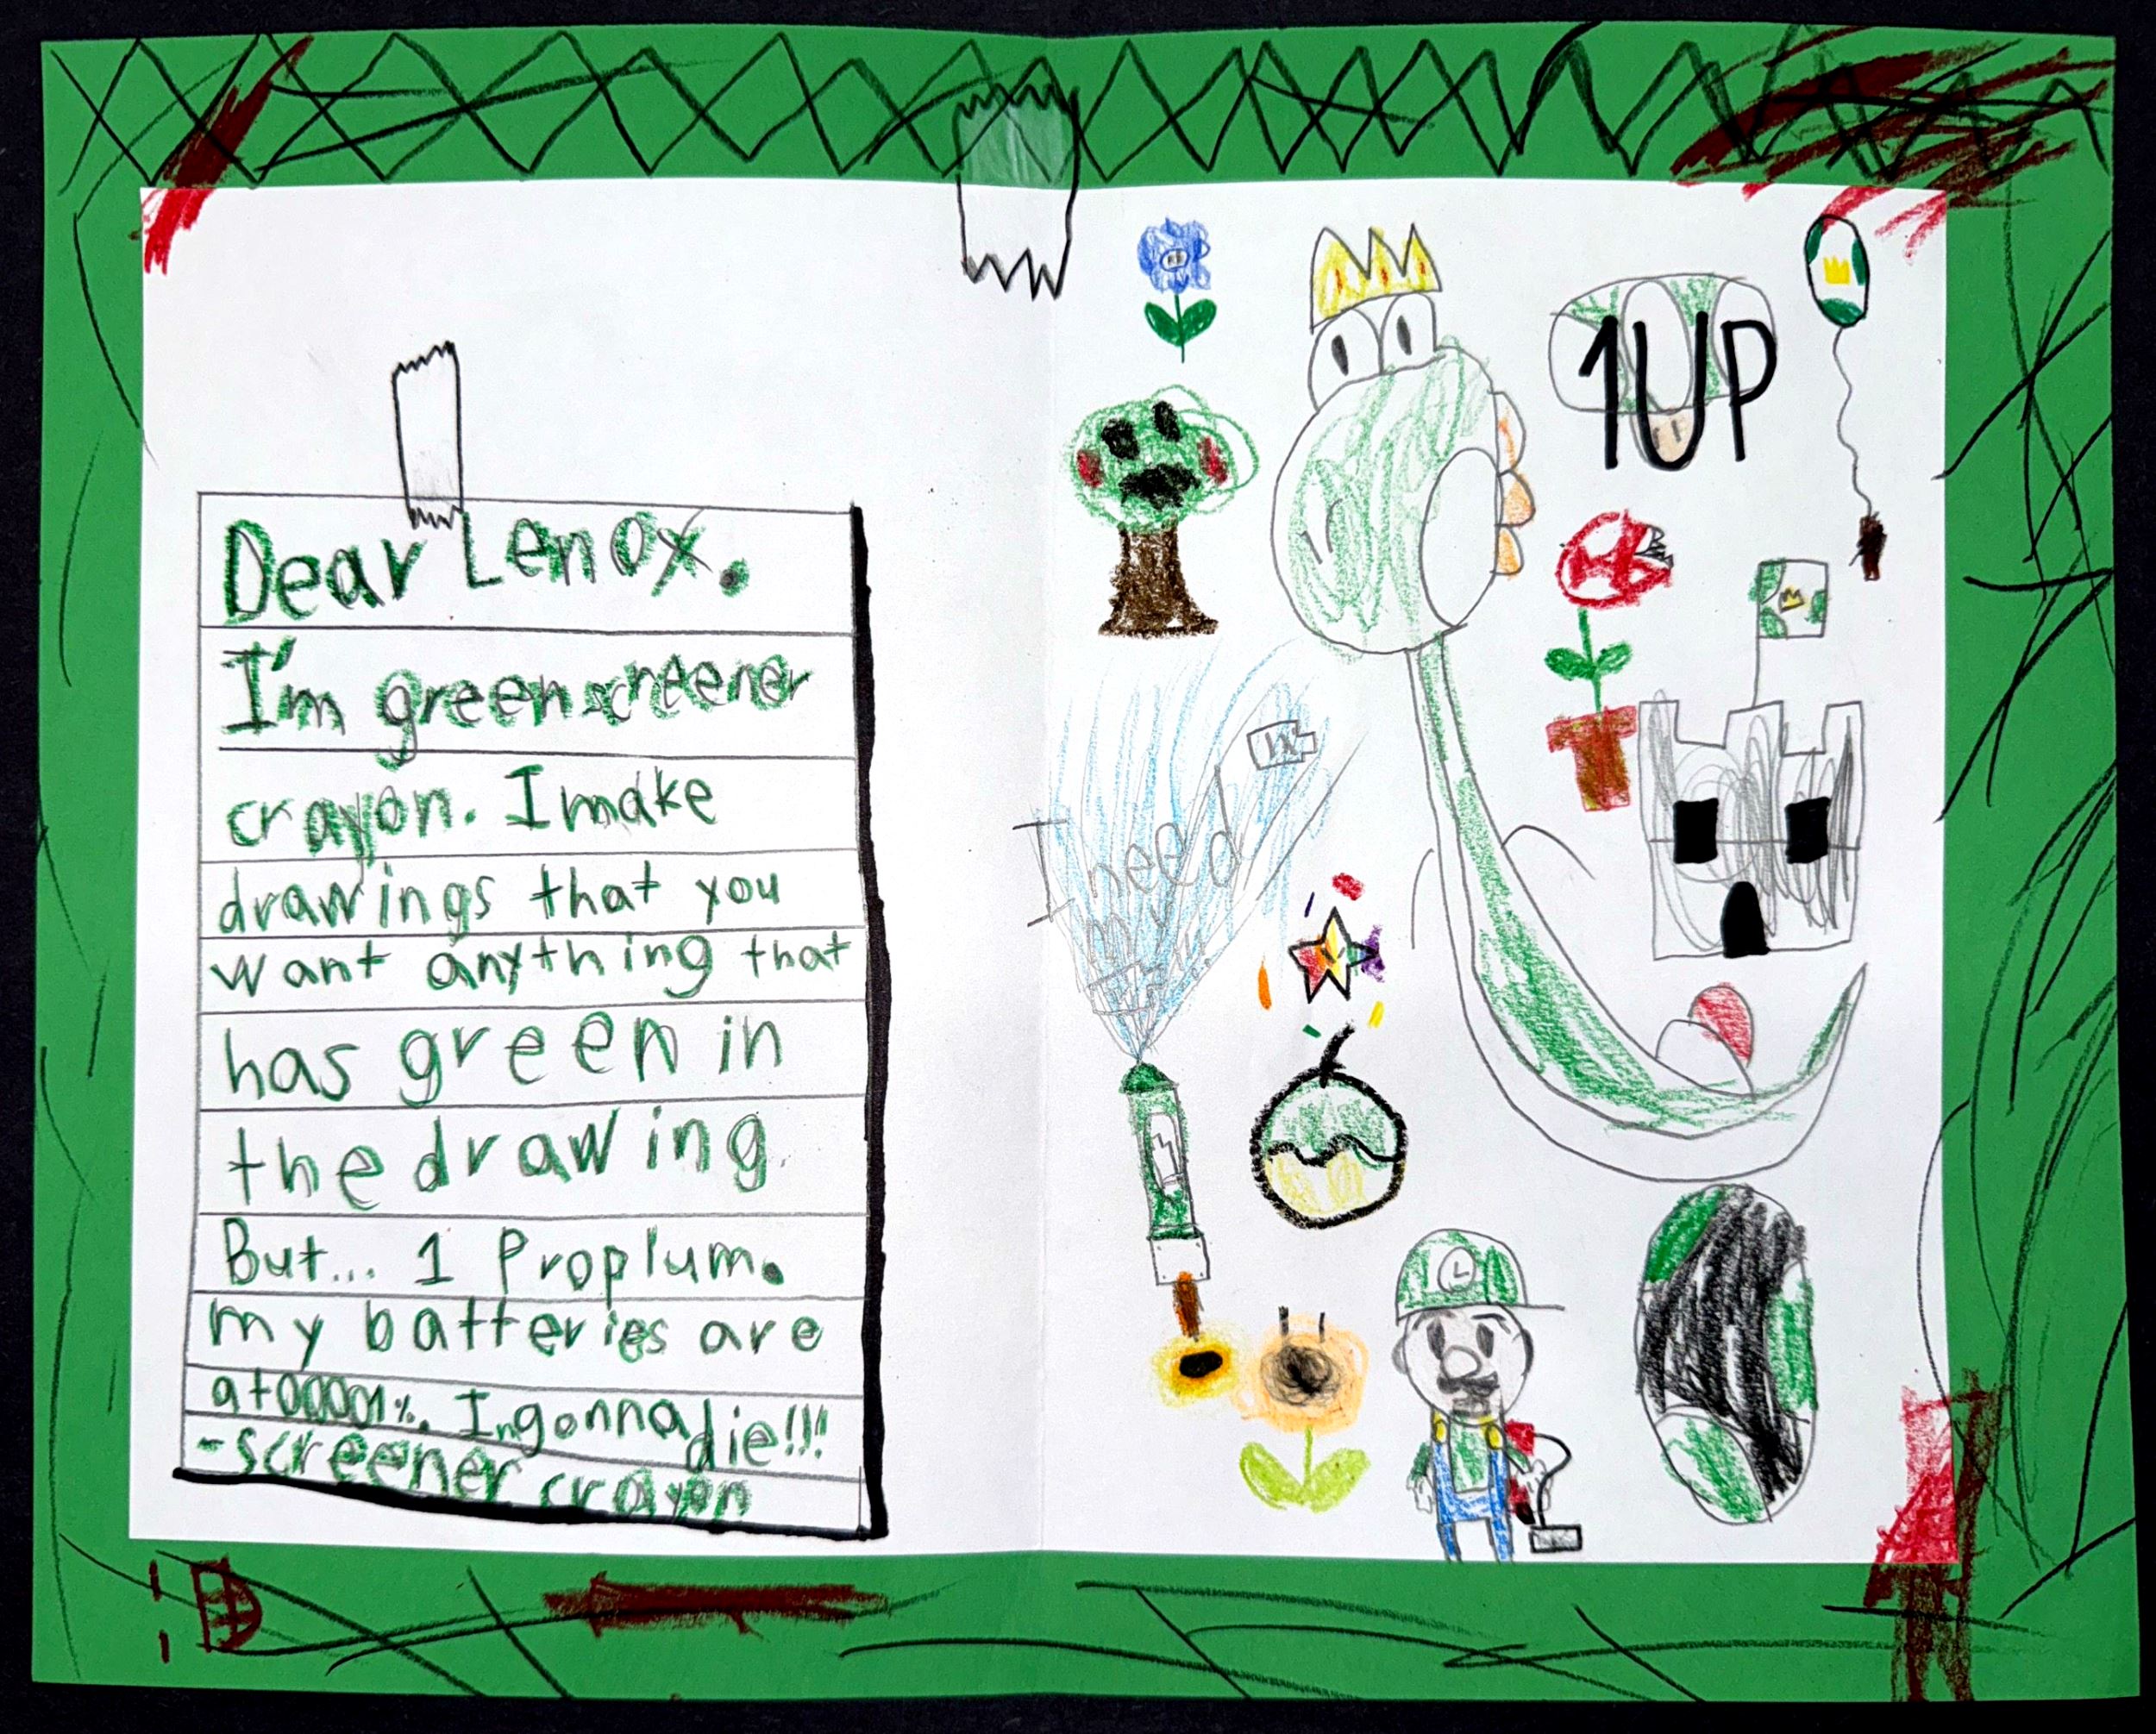 Dear Lenox.
I'm greenscreener
crayon. I make
drawings that you
want anything that
has green in
the drawing
But... 1 Proplum.
my batteries are
at 00001%. I'ngonna die!!!
-screener crayon
1UP
I need
my
L